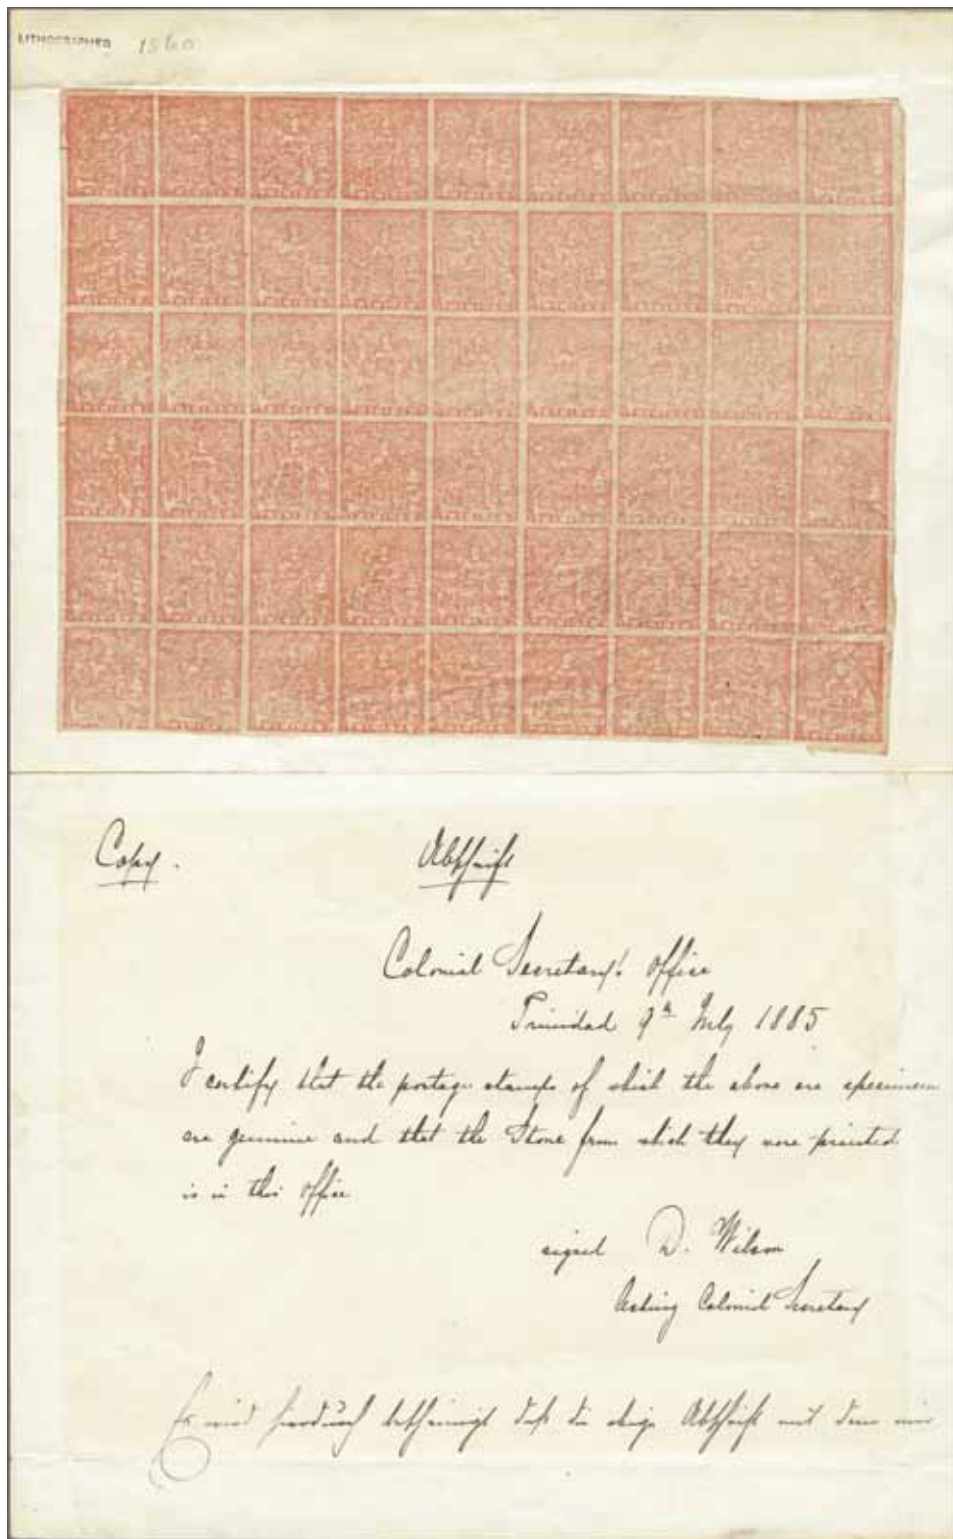 LITHOGRAPHED 1860
Copy.
Abschrift
Colonial Secretary's Office
Trinidad 9th July 1885
I certify that the postage stamps of which the above are specimens
are genuine and that the Stone from which they were printed
is in this office
signed D. Wilson
Acting Colonial Secretary
Es wird hierdurch bescheinigt daß die obige Abschrift mit dem mir